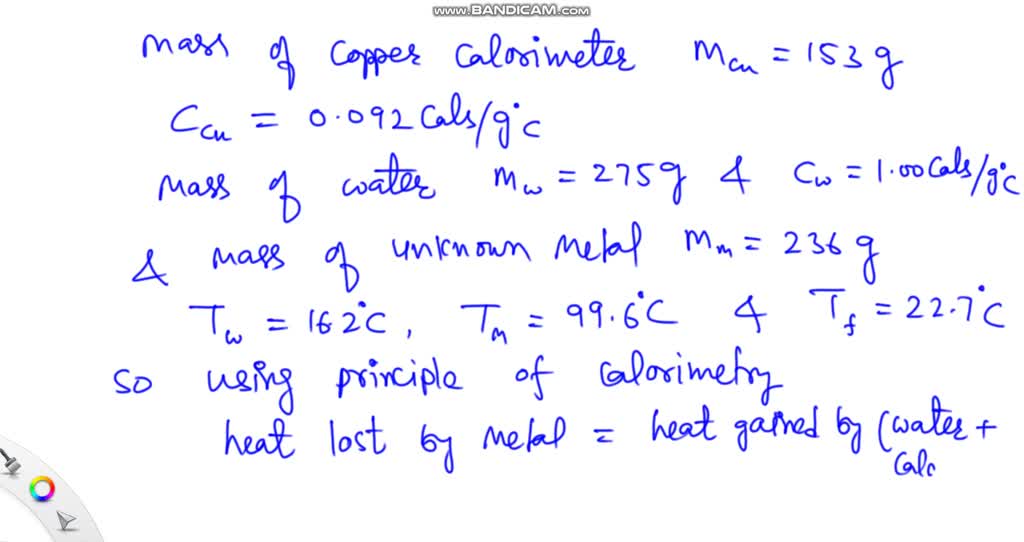 www.BANDICAM.com
Mass of Copper Calorimeter Mcu = 153 g
Ccu = 0.092 Cals/g°C
Mass of water Mw = 275g & Cw = 1.00 Cals/g°C
& Mass of unknown Metal Mm = 236 g
Tw = 16.2°C, Tm = 99.6°C & Tf = 22.7°C
So using principle of Calorimetry
heat lost by metal = heat gained by (water +
Calo